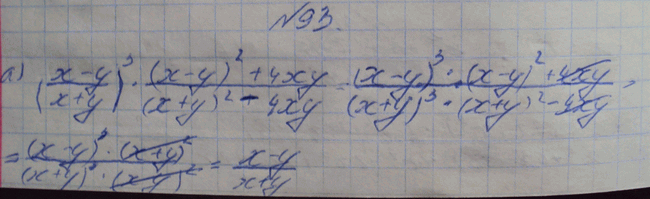 №93.
а) (x-y/x+y)³ · (x-y)²+4xy/(x+y)²-4xy = (x-y)³·(x-y)²+4xy/(x+y)³·(x+y)²-4xy =
= (x-y)³·(x+y)²/(x+y)³·(x-y)² = x-y/x+y